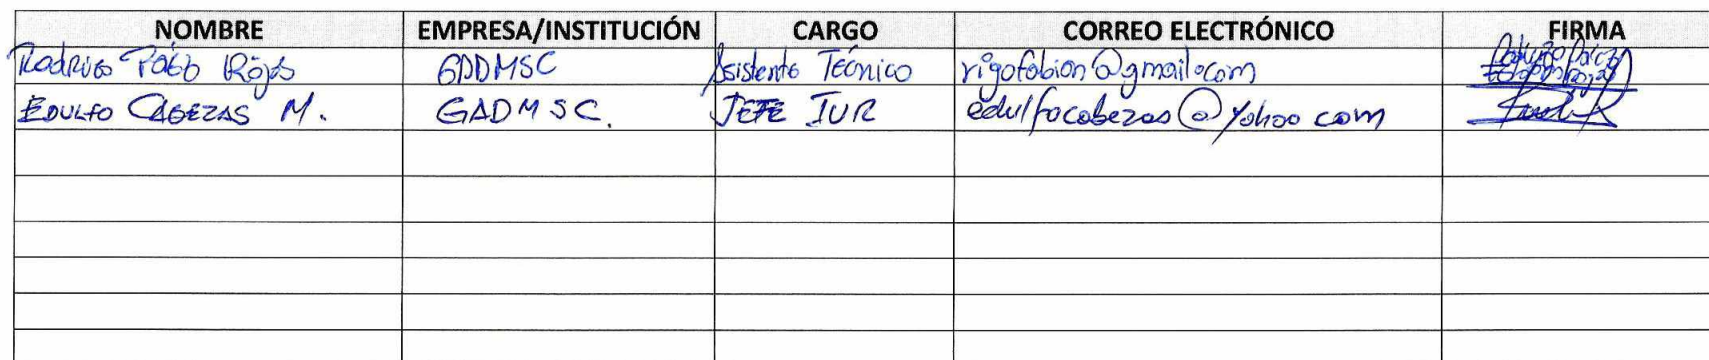 NOMBRE EMPRESA/INSTITUCIÓN CARGO CORREO ELECTRÓNICO FIRMA
Rojas GADMSC Asistente Técnico rigofabian@gmail.com
EDULFO CABEZAS M. GADMSC. JEFE IUR edulfocabezas@yahoo com